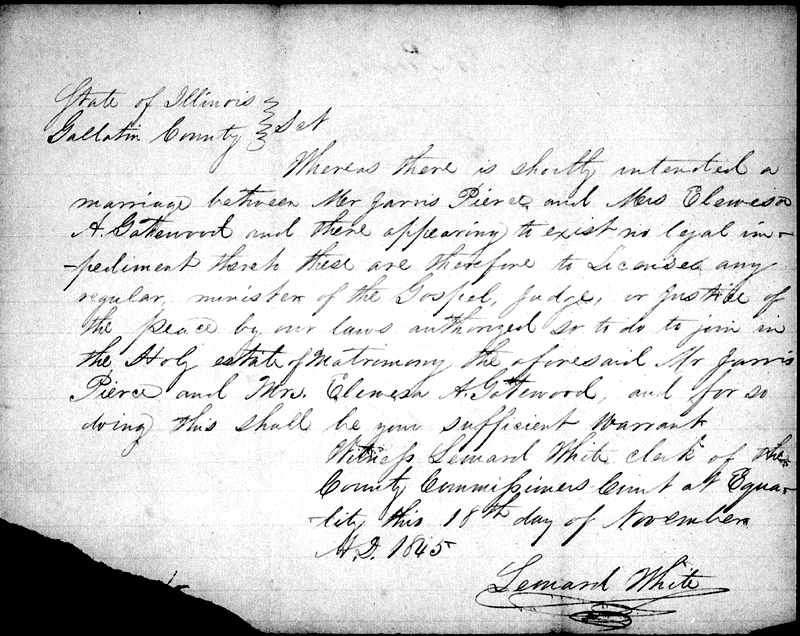 State of Illinois
Gallatin County } Sct
Whereas there is shortly intended a
marriage between Mr Jarvis Pierce and Mrs Elewesa
A. Gatewood and there appearing to exist no legal im-
-pediment thereto these are therefore to License any
regular, minister of the Gospel, Judge, or Justice of
the peace by our laws authorized so to do to join in
the Holy estate of Matrimony the aforesaid Mr Jarvis
Pierce and Mrs. Elewesa A. Gatewood, and for so
doing this shall be your sufficient warrant
Witness Lemard White clerk of the
County Commissioners Court at Equa-
-lity this 18th day of November
A.D. 1845
Lemard White